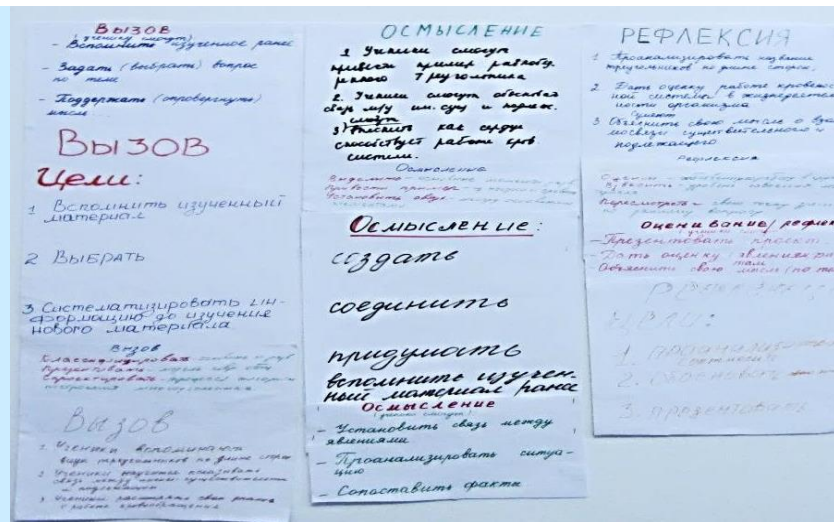 Вызов
(ученики смогут)
- Вспомнить изученное ранее
- Задать (выбрать) вопрос
по теме
- Поддержать (опровергнуть)
мысль...
Вызов
Цели:
1 Вспомнить изученный
материал
2 Выбрать
3 Систематизировать ин-
формацию до изучения
нового материала
Вызов
Классифицировать
Презентовать
Спроектировать
Вызов
1. Ученики вспоминают
виды треугольников по длине сторон
2 Ученики научатся показывать
связь между
и подлежащим
3 Ученики расширят свои знания
о работе кровообращения
ОСМЫСЛЕНИЕ
1. Ученики смогут
привести пример равнобед.
треугольника
2. Ученики смогут обосновать
связь м/у им. сущ и подлеж.
смогут
3) Выяснить как сердце
способствует работе кров
системы.
Осмысление
Выделить
Привести пример
Установить связь
Осмысление:
создать
соединить
придумать
вспомнить изучен-
ный материал ранее
Осмысление
(ученики смогут)
- Установить связь между
явлениями
- Проанализировать ситуа-
цию
- Сопоставить факты
РЕФЛЕКСИЯ
1 Проанализировать название
треугольников по длине сторон.
2. Дать оценку работе кровенос-
ной системы в жизнедеятель
ности организма
Сумеют
3 Объяснить свою мысль о вза
мосвязи существительного и
подлежащего
Рефлексия
Оценить
Взвесить
Пересмотреть свою точку
Оценивание/рефлек
- Презентовать проект
- Дать оценку (явлениям
- Объяснить свою мысль (по
Цели:
1. проанализировать
2. Обосновать
3. презентовать